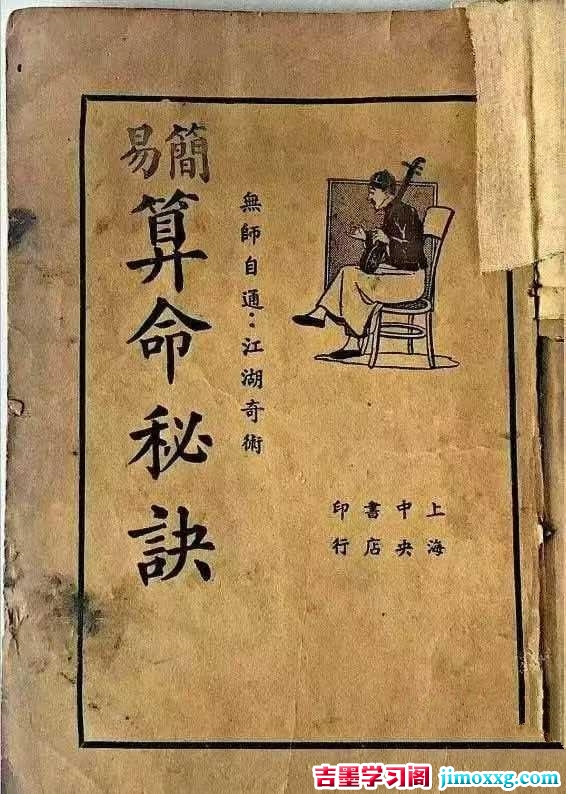 簡易
算命秘訣
無師自通:江湖奇術
上海
中央
書店
印行
吉墨学习阁 jimoxxg.com